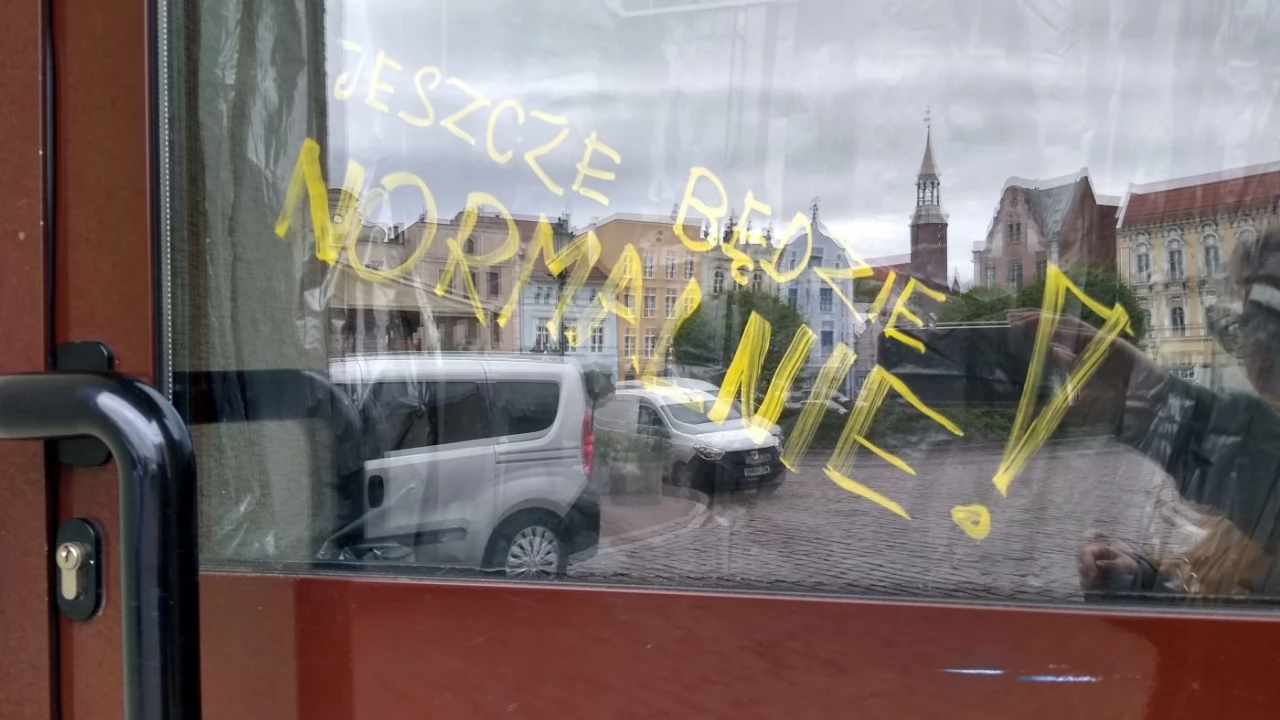 JESZCZE BĘDZIE
NORMALNIE!